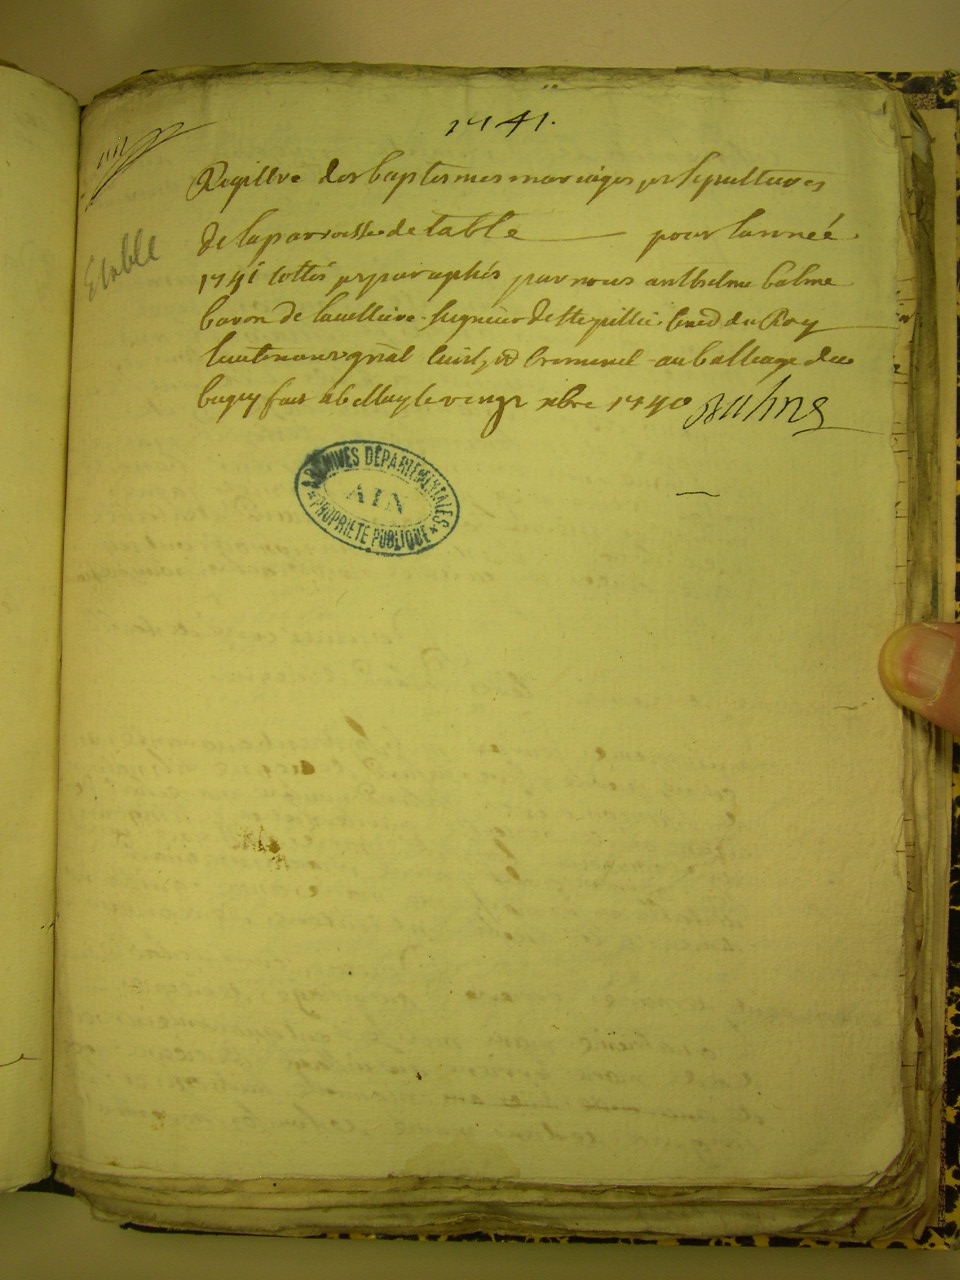 1741.
Registre des baptesmes mariages et sepultures
de la parroisse detable pour lannée
Etable
1741 cottés et paraphés par nous anthelme balme
baron de Seigneur de Ste du Roy
lieutenant gñal civil, et criminel au balliage du
bugey fait a belley le vingt xbre 1740 Balme
ARCHIVES DÉPARTEMENTALES
AIN
PROPRIÉTÉ PUBLIQUE